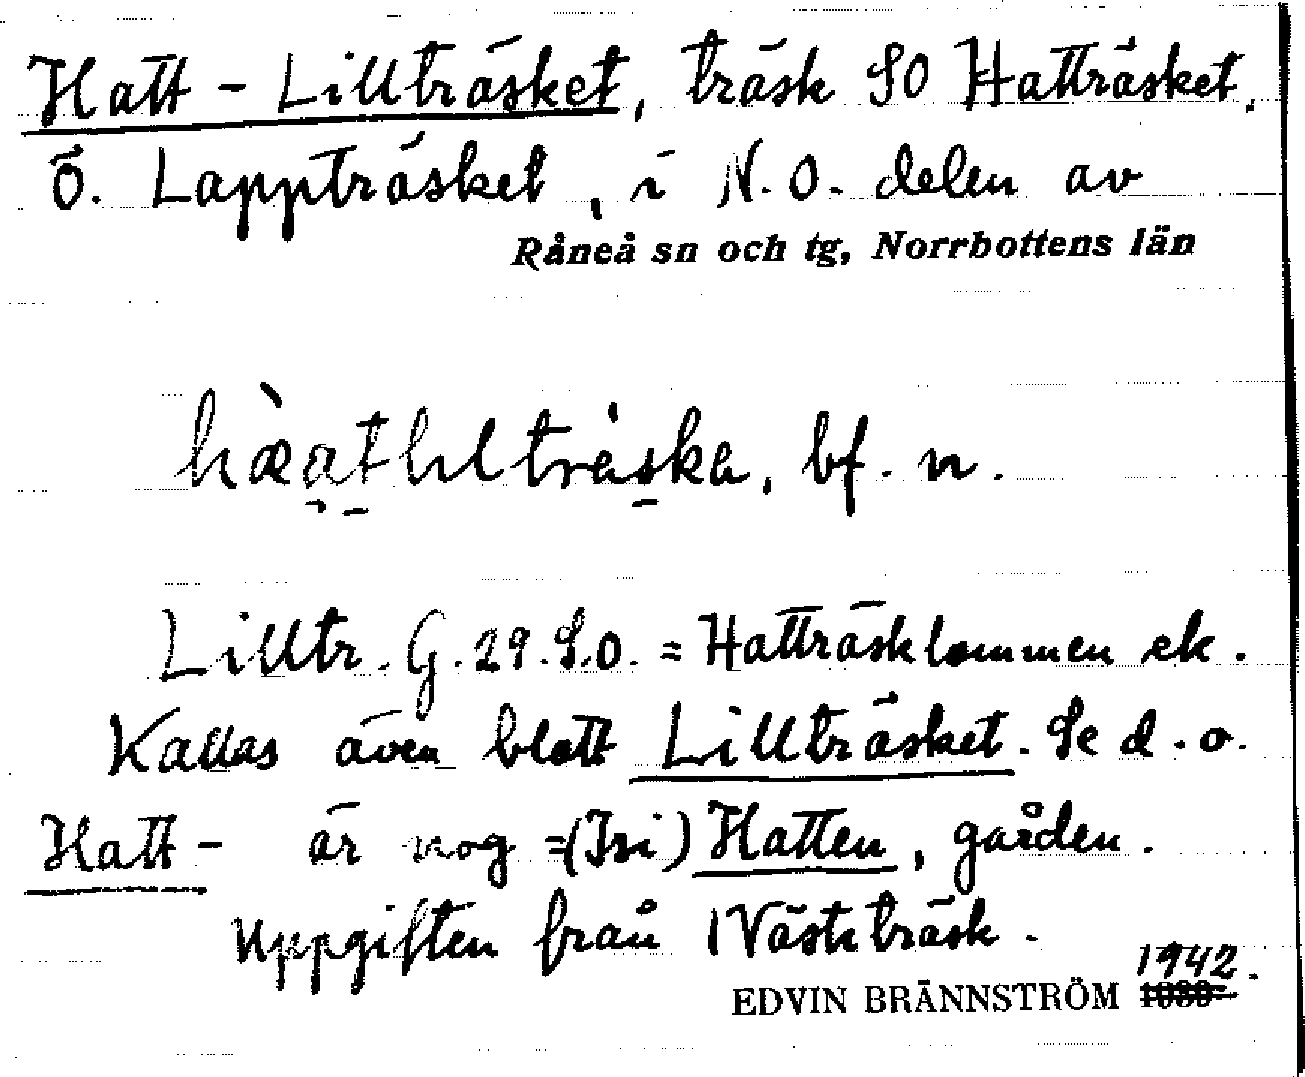 Hatt-Lillträsket, träsk SO Hatträsket,
Ö. Lappträsket, i N.O. delen av
Råneå sn och tg, Norrbottens län
bf. n.
Lilltr. G. 29. S.O. = Hatträsklommen ek.
Kallas även blott Lillträsket. Se d.o.
Hatt- är nog = (Isi) Hatten, gården.
Uppgiften från Västiträsk.
EDVIN BRÄNNSTRÖM 1942.